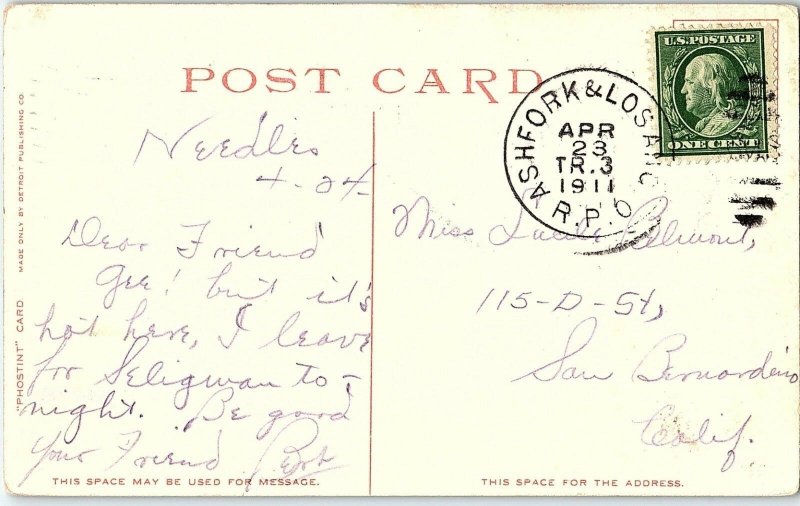 POST CARD
U.S. POSTAGE
ONE CENT
ASHFORK & LOS ANG
APR
23
TR. 3
1911
R.P.O
Needles
4-24-
Dear Friend
Gee! but it's
hot here, I leave
for Seligman to-
night. Be good
your Friend
Miss Lucile Belmont,
115-D-St,
San Bernardino
Calif.
"PHOSTINT" CARD
MADE ONLY BY DETROIT PUBLISHING CO.
THIS SPACE MAY BE USED FOR MESSAGE.
THIS SPACE FOR THE ADDRESS.